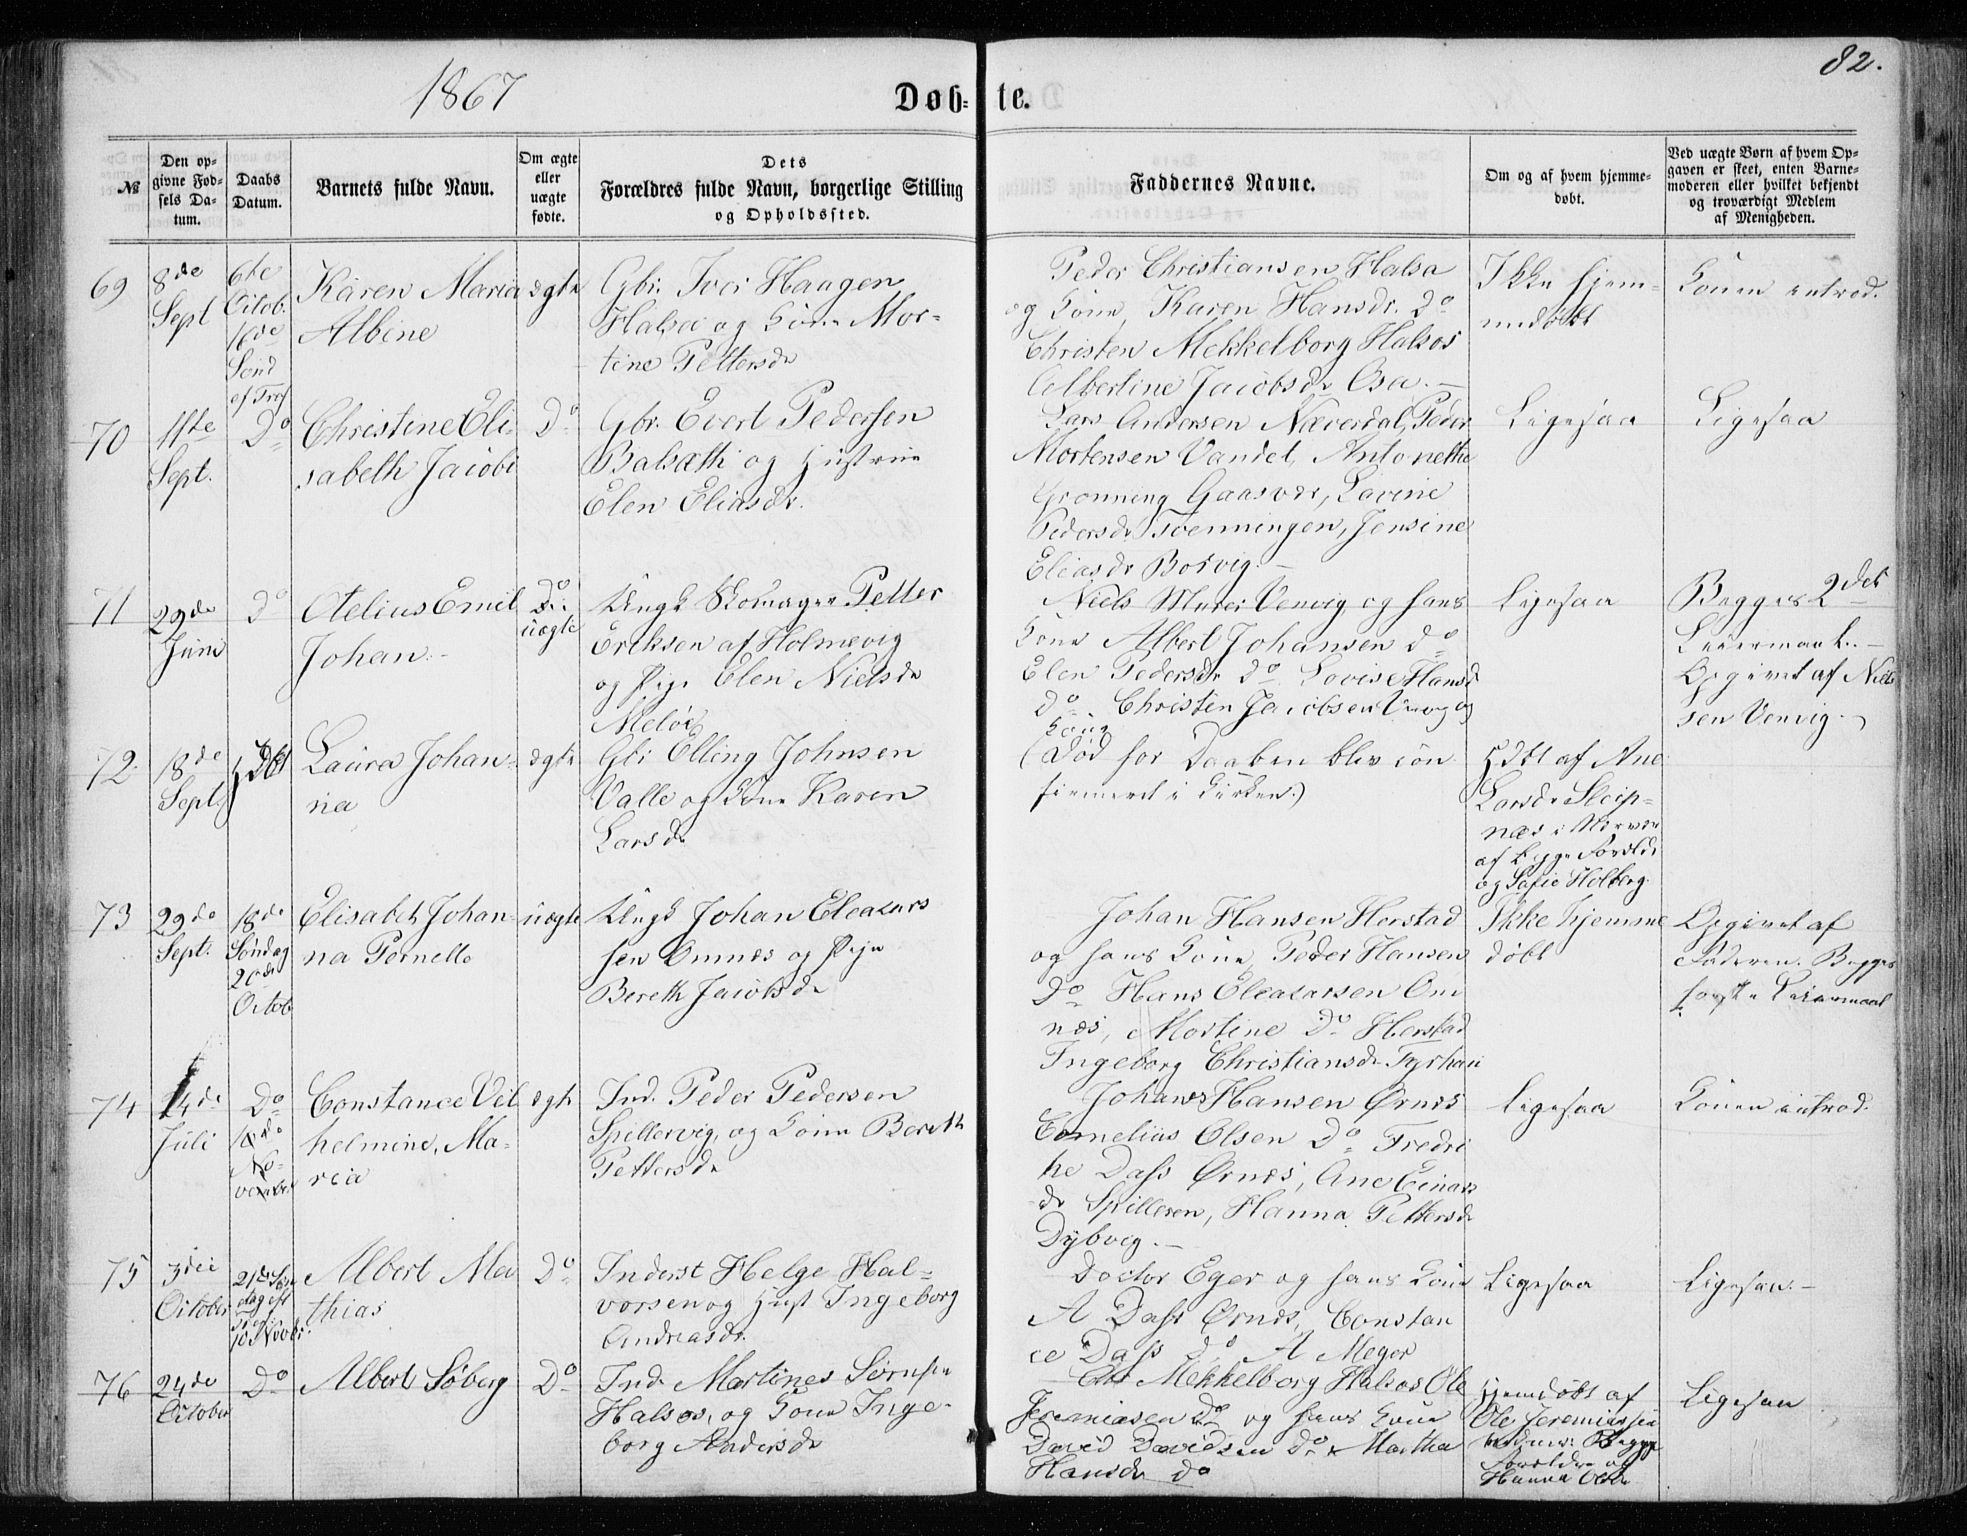 1867
82.
Døb-
te.
№
Den op-
givne Fød-
sels Da-
tum.
Daabs
Datum.
Barnets fulde Navn.
Om ægte
eller
uægte
fødte.
Dets
Forældres fulde Navn, borgerlige Stilling
og Opholdssted.
Faddernes Navne.
Om og af hvem hjemme-
døbt.
Ved uægte Børn af hvem Op-
gaven er skeet, enten Barne-
moderen eller hvilket bekjendt
og troværdigt Medlem
af Menigheden.
69
8de
Sept
6te
Octob.
16de
Sønd
ef Tref
Karen Maria
Albine
ægte
Gbr. Iver Haagen
Halsa og Kone Mor-
tine Pettersdr
Peder Christiansen Halsa
og Kone, Karen Hansdr. Do
Christen Mekkelborg Halsos
Albertine Jacobsdr Osa.
Ikke hjem-
medøbt
Konen introd.
70
11te
Sept.
Do
Christine Eli-
sabeth Jacobi
Do
Gbr. Evert Pedersen
Balsæth og Hustrue
Elen Eliasdr.
Lars Andersen Næverdal, Peder
Mortensen Vandet, Antonette
Grønning Gaasvær, Lavine
Pedersdr Svenningen, Jensine
Eliasdr Bosvig.
Ligesaa
Ligesaa
71
29de
Juni
Do
Otelius Emil
Johan.
Do
uægte
Ungk Skomager Petter
Eriksen af Holmevig
og Pige Elen Nielsdr
Meløe
Niels Murer Venvig og hans
Kone Albert Johansen do
Elen Pedersdr do Lovise Hansd
do Christen Jacobsen Venvig og
Kone
Ligesaa
Begges 2det
Leiermaal.
Opgivet af Niels
sen Venvig.
72
18de
Sept.
Hdbt
Laura Johan-
na
ægte
Gbr Elling Johnsen
Valle og Kone Karen
Larsdr
(Død før Daaben blev con
firmeret i Kirken.)
Hdbt af Ane
Larsdr Sleip-
næs i Nærvær
af begge Forældr
og Sofie Holberg.
73
29de
Sept.
18de
Søndag
20de
Octob
Elisabet Johan-
na Pernelle
uægte
Ungk Johan Eleazars
sen Omnes og Pige
Bereth Jacobsdr
Johan Hansen Herstad
og hans Kone, Peder Hansen
Do Hans Eleazarsen Om
næs, Mortine Do Herstad
Ingeborg Christiansdr
Ikke hjemme
døbt
Opgivet af
Faderen. Begges
første Leiermaal
74
14de
Juli
Do
18de
No-
vember
Constance Vil
helmine, Ma-
ria
ægte
Ind. Peder Pedersen
Spillervig, og Kone Bereth
Pettersdr
Johan Hansen Ørnes
Cornelius Olsen Do Fredri
ke Dass Ørnes, Ane Einars
dr Spilleren, Hanna Pettersdr
Dybvig.
Ligesaa
Konen introd.
75
3die
October
21de Søn
dag eft
10 Novbr.
Albert Ma
thias
Do
Inderst Helge Hal-
vorsen og Hust Ingeborg
Andreasdr.
Doctor Eger og hans Kone
A Dass Ørnes, Constan
ce Dass do A Meyer
Ligesaa
Ligesaa.
76
24de
October
Do
Albert Søberg
Do
Ind. Martines Sørnsen
Halsos, og Kone Inge-
borg Andersdr
Chr Mekkelborg Halsos Ole
Jeremiasen do og hans Kone
David Davidsen do Martha
Hansdr do
Hjemdøbt af
Ole Jeremiassen
Begge
Forældre og
Hanna Olsdr
Ligesaa